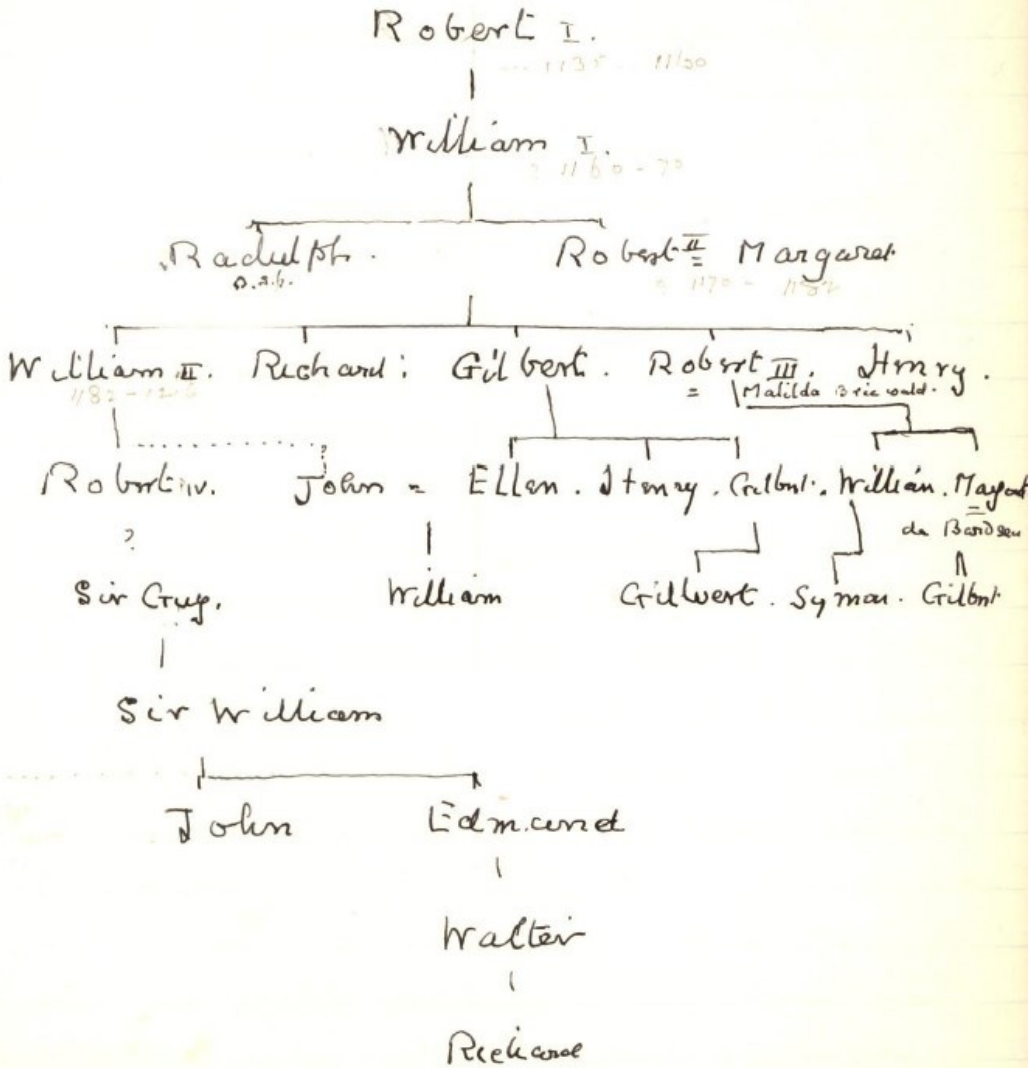 Robert I.
1135 1150
William I.
? 1160-70
Radulph. Robert II = Margaret
o.s.p.
? 1170- 1182
William II. Richard: Gilbert. Robert III. Henry.
= Matilda
Robert IV. John = Ellen. Henry. Gilbert. William. Margaret
=
de
?
Sir Guy. William Gilbert. Symon. Gilbert
Sir William
John Edmund
Walter
Richard